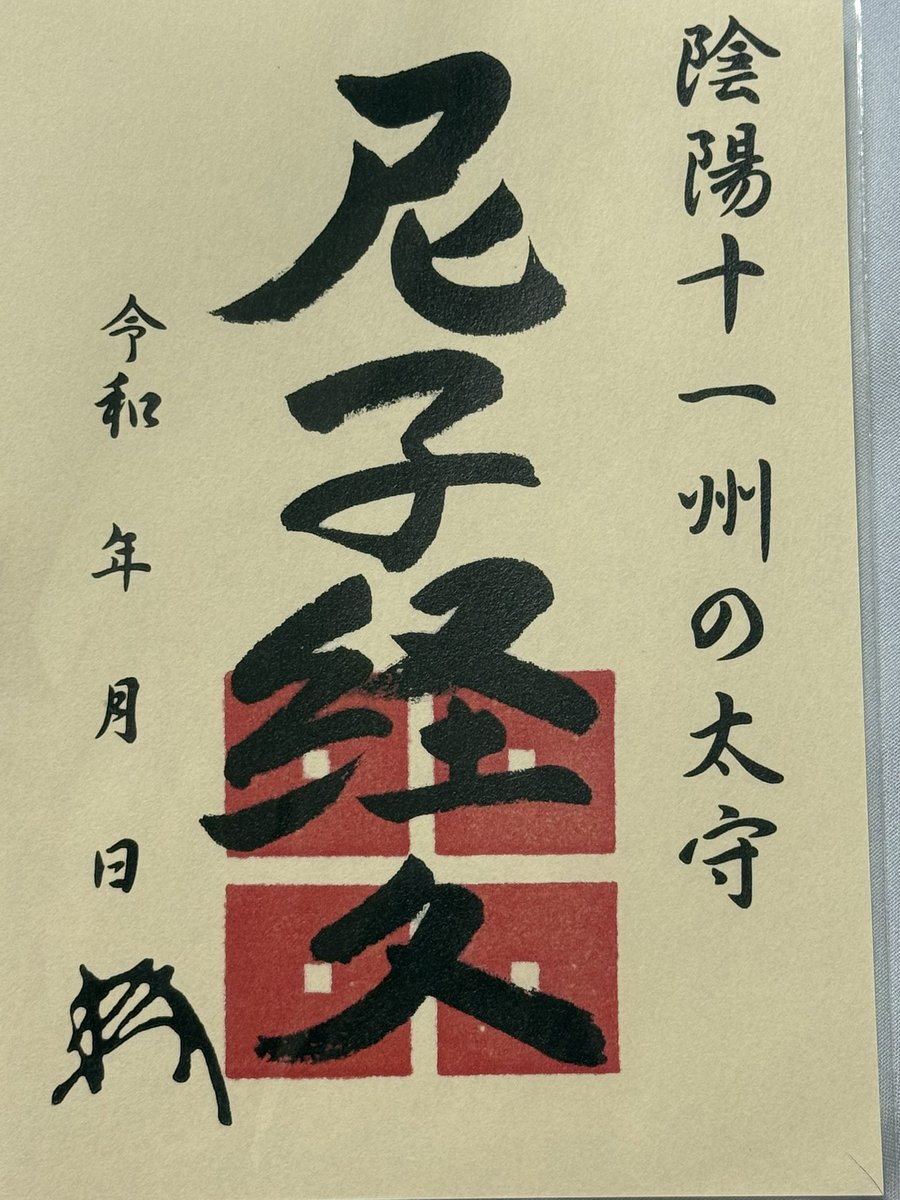 陰陽十一州の太守
尼子経久
令和 年 月 日